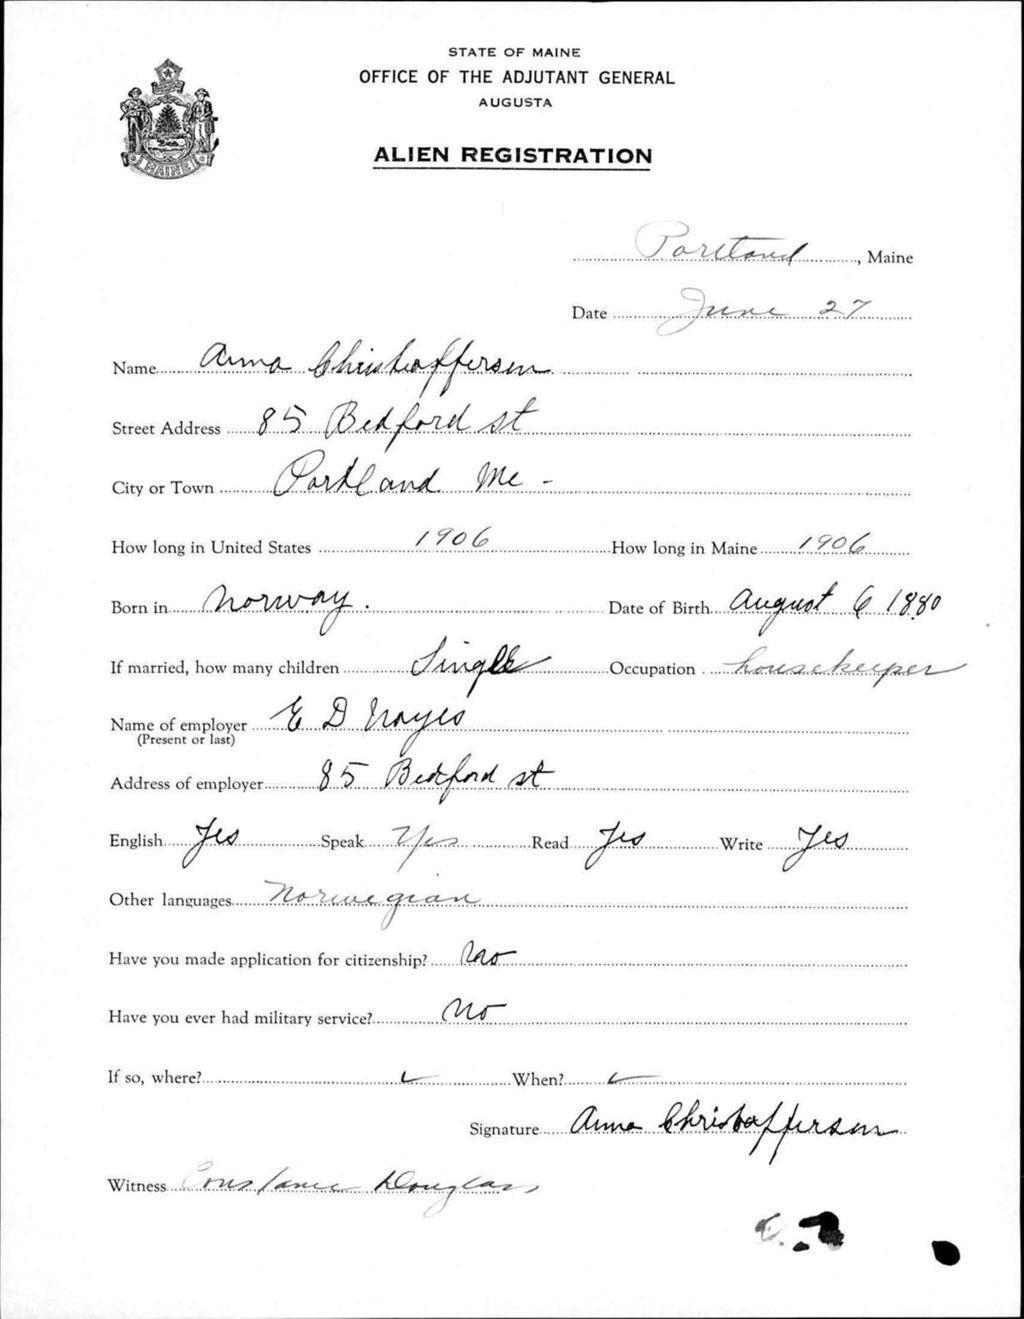 STATE OF MAINE
OFFICE OF THE ADJUTANT GENERAL
AUGUSTA
ALIEN REGISTRATION
MAINE
Portland, Maine
Date June 27
Name Anna Christoffersen
Street Address 85 Bedford st
City or Town Portland Me -
How long in United States 1906 How long in Maine 1906
Born in Norway. Date of Birth August 6 1880
If married, how many children Single Occupation housekeeper
Name of employer E D Noyes
(Present or last)
Address of employer 85 Bedford st
English Yes Speak Yes Read Yes Write Yes
Other languages Norwegian
Have you made application for citizenship? No
Have you ever had military service? No
If so, where? ✓ When? ✓
Signature Anna Christoffersen
Witness Constance Douglass